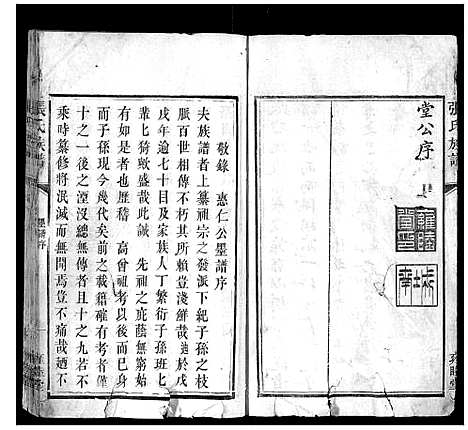 張氏族譜
堂公序
雍睦堂
敬錄 惠仁公墨譜序
夫族譜者上纂祖宗之發派下紀子孫之枝
脈百世相傳不朽其所賴豈淺鮮哉 於戊
戌年逾七十目及家族人丁繁衍子孫班七
輩七猗歟盛哉此誠 先祖之庇蔭無窮始
有如是者也歷稽 高曾祖考以及於
而子孫現今幾代矣前之載籍確有考者僅
十之一後之湮沒總無傳者且十之九若不
乘時纂修將泯滅而無聞焉豈不痛哉廼不
張氏族譜
墨譜序
雍睦堂